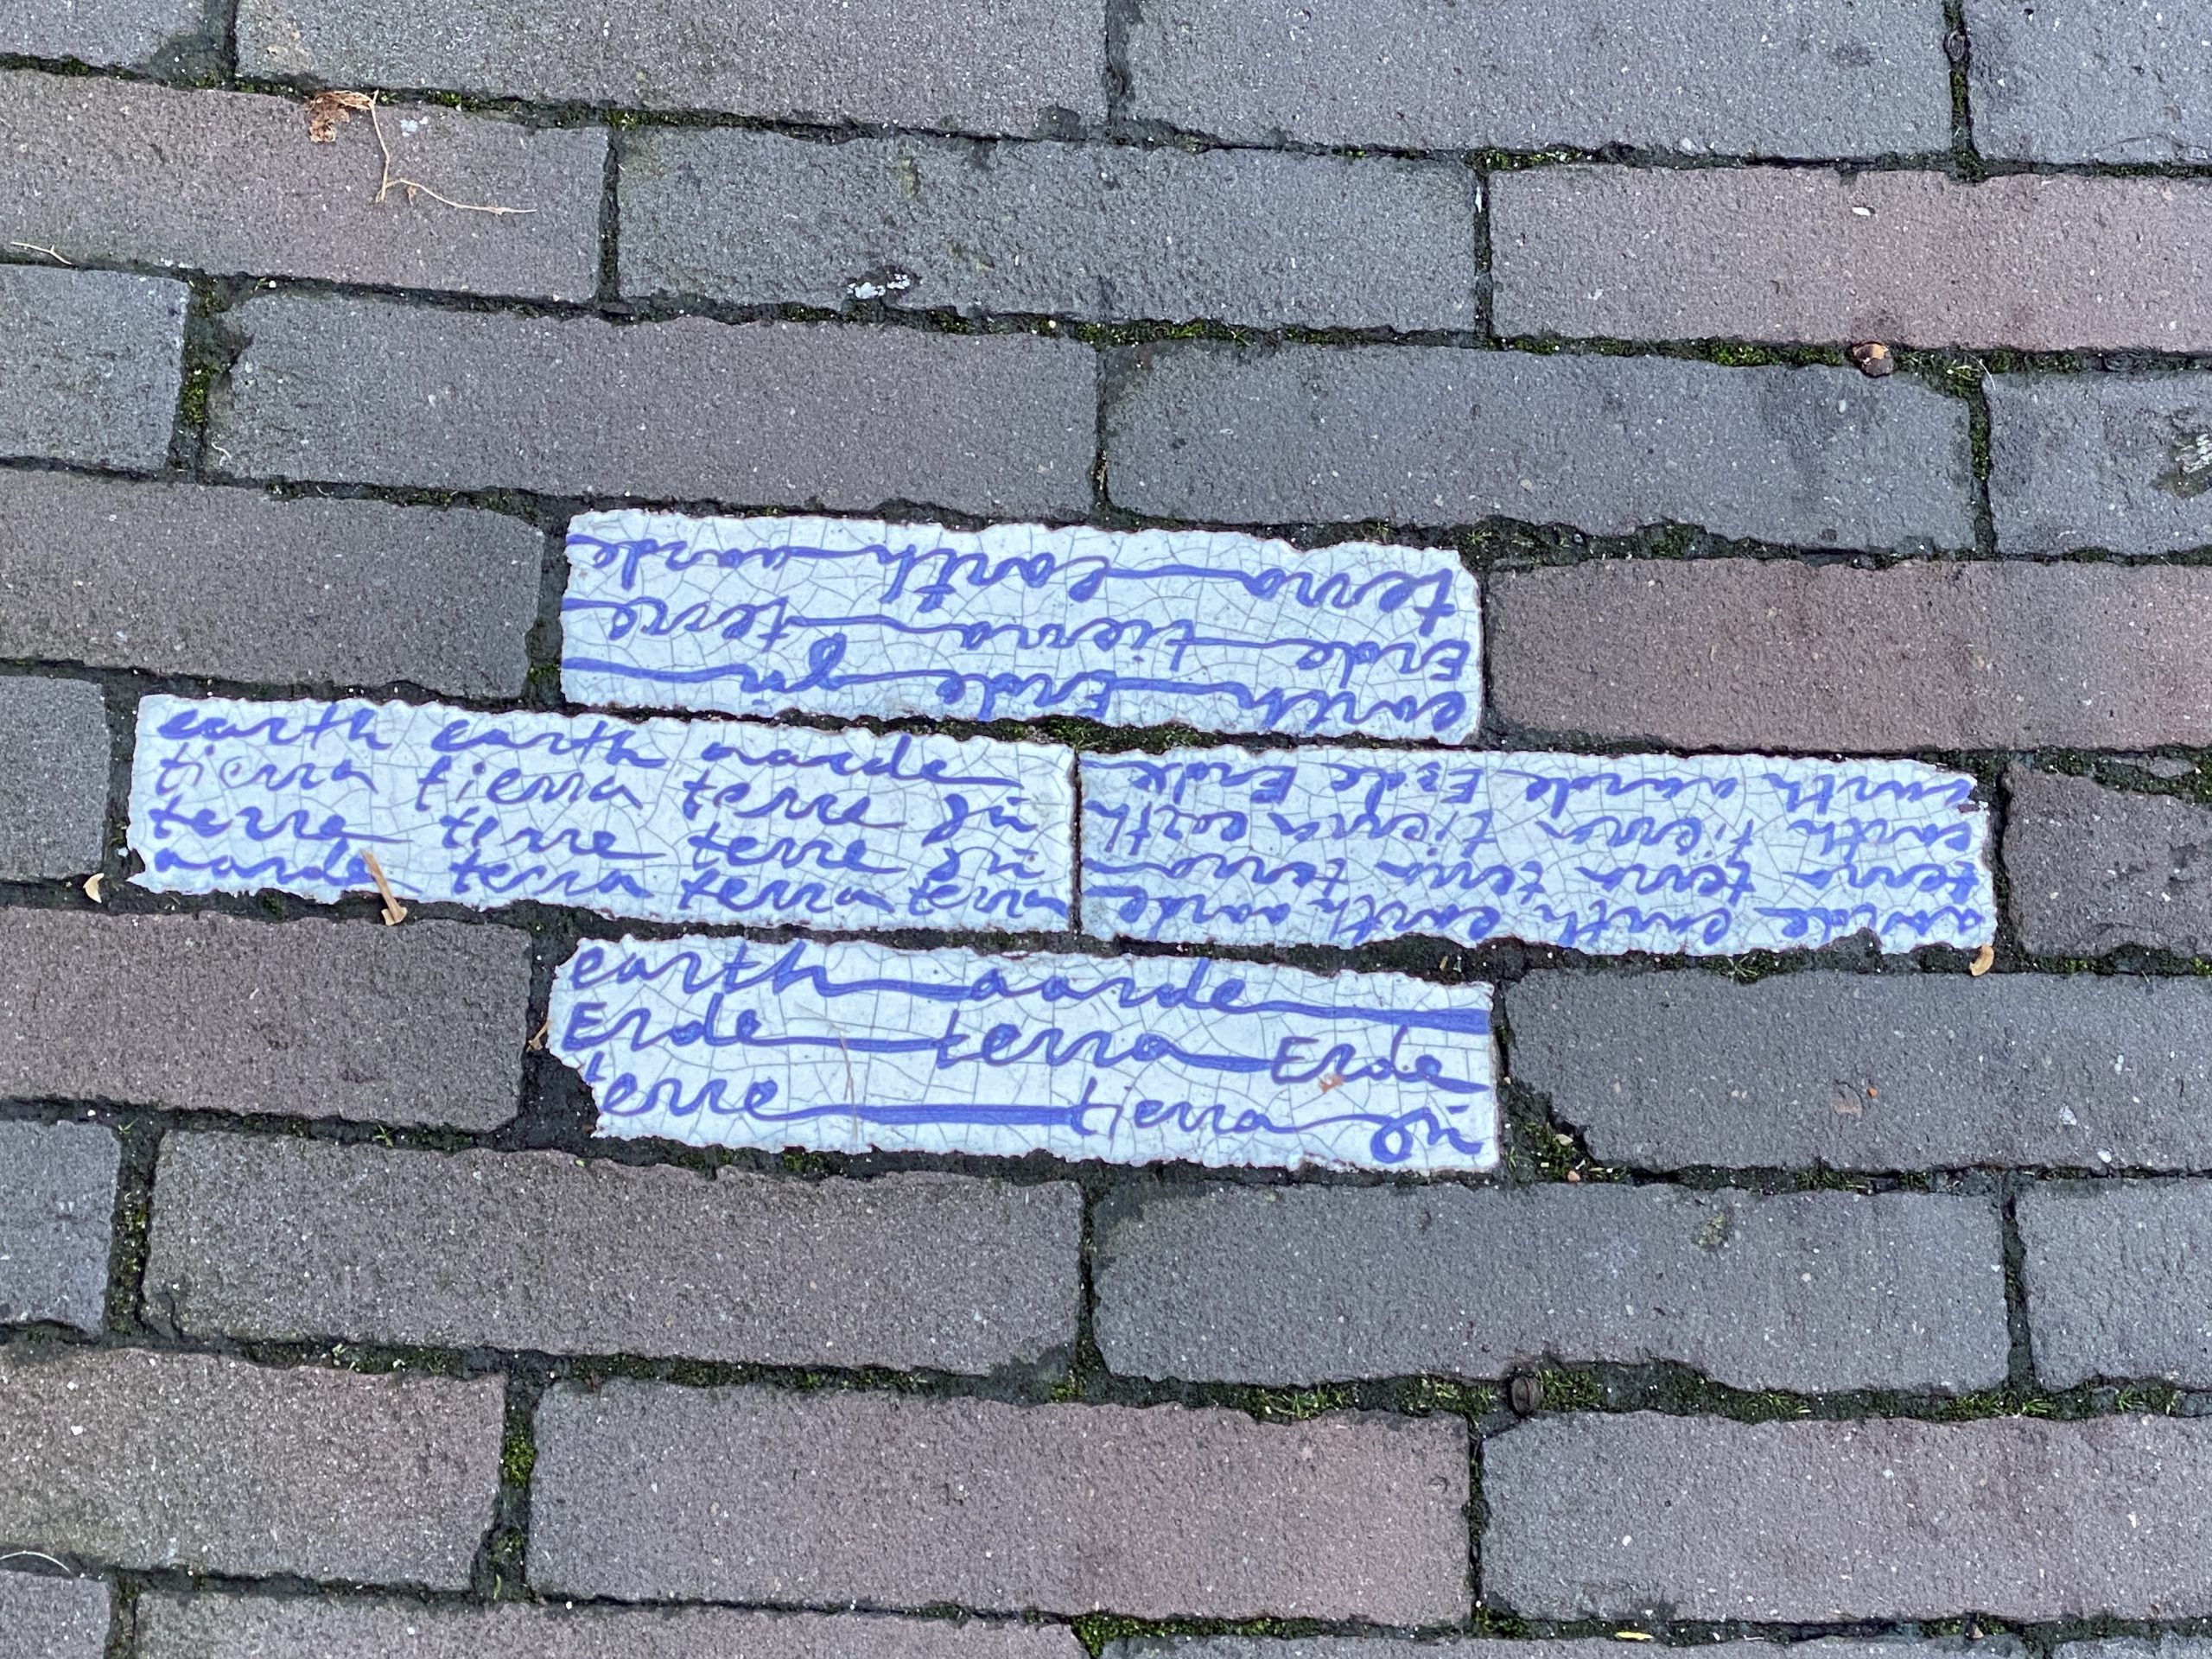 earth Erde
Erde tierra terre
terra earth aarde
earth earth aarde
tierra tierra terre
terra terre terre
aarde terra terra terra
aarde earth earth aarde
terra terra terra terra
earth tierra tierra earth
earth aarde Erde Erde
earth aarde
Erde terra Erde
terre tierra